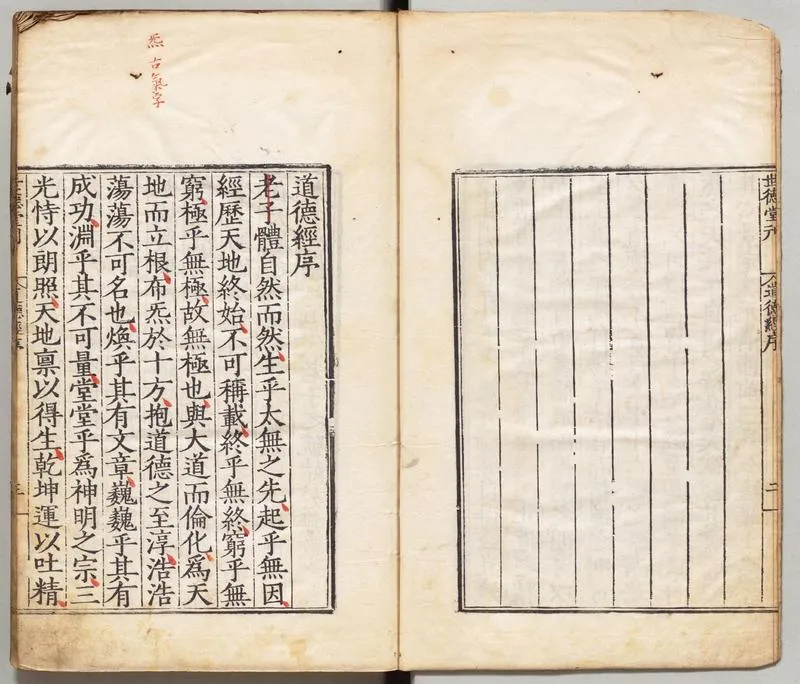 世德堂刊
道德經序
二
炁古氣字
道德經序
老子體自然而然生乎太無之先起乎無因
經歷天地終始不可稱載終乎無終窮乎無
窮極乎無極故無極也與大道而倫化爲天
地而立根布炁於十方抱道德之至淳浩浩
蕩蕩不可名也煥乎其有文章巍巍乎其有
成功淵乎其不可量堂堂乎爲神明之宗三
光恃以朗照天地禀以得生乾坤運以吐精